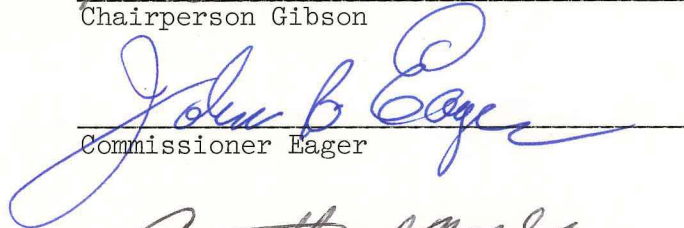 Chairperson Gibson
John B Eager
Commissioner Eager